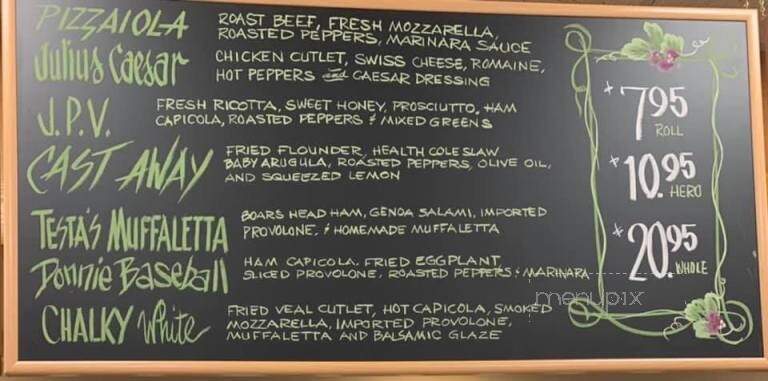 PIZZAIOLA ROAST BEEF, FRESH MOZZARELLA,
ROASTED PEPPERS, MARINARA SAUCE
Julius Caesar CHICKEN CUTLET, SWISS CHEESE, ROMAINE,
HOT PEPPERS and CAESAR DRESSING
J.P.V. FRESH RICOTTA, SWEET HONEY, PROSCIUTTO, HAM
CAPICOLA, ROASTED PEPPERS & MIXED GREENS
CAST AWAY FRIED FLOUNDER, HEALTH COLESLAW
BABY ARUGULA, ROASTED PEPPERS, OLIVE OIL,
AND SQUEEZED LEMON
TESTA'S MUFFALETTA BOARS HEAD HAM, GENOA SALAMI, IMPORTED
PROVOLONE, & HOMEMADE MUFFALETTA
Donnie Baseball HAM CAPICOLA, FRIED EGGPLANT,
SLICED PROVOLONE, ROASTED PEPPERS & MARINARA
CHALKY White FRIED VEAL CUTLET, HOT CAPICOLA, SMOKED
MOZZARELLA, IMPORTED PROVOLONE,
MUFFALETTA AND BALSAMIC GLAZE
* 7.95
ROLL
* 10.95
HERO
* 20.95
WHOLE
menupix